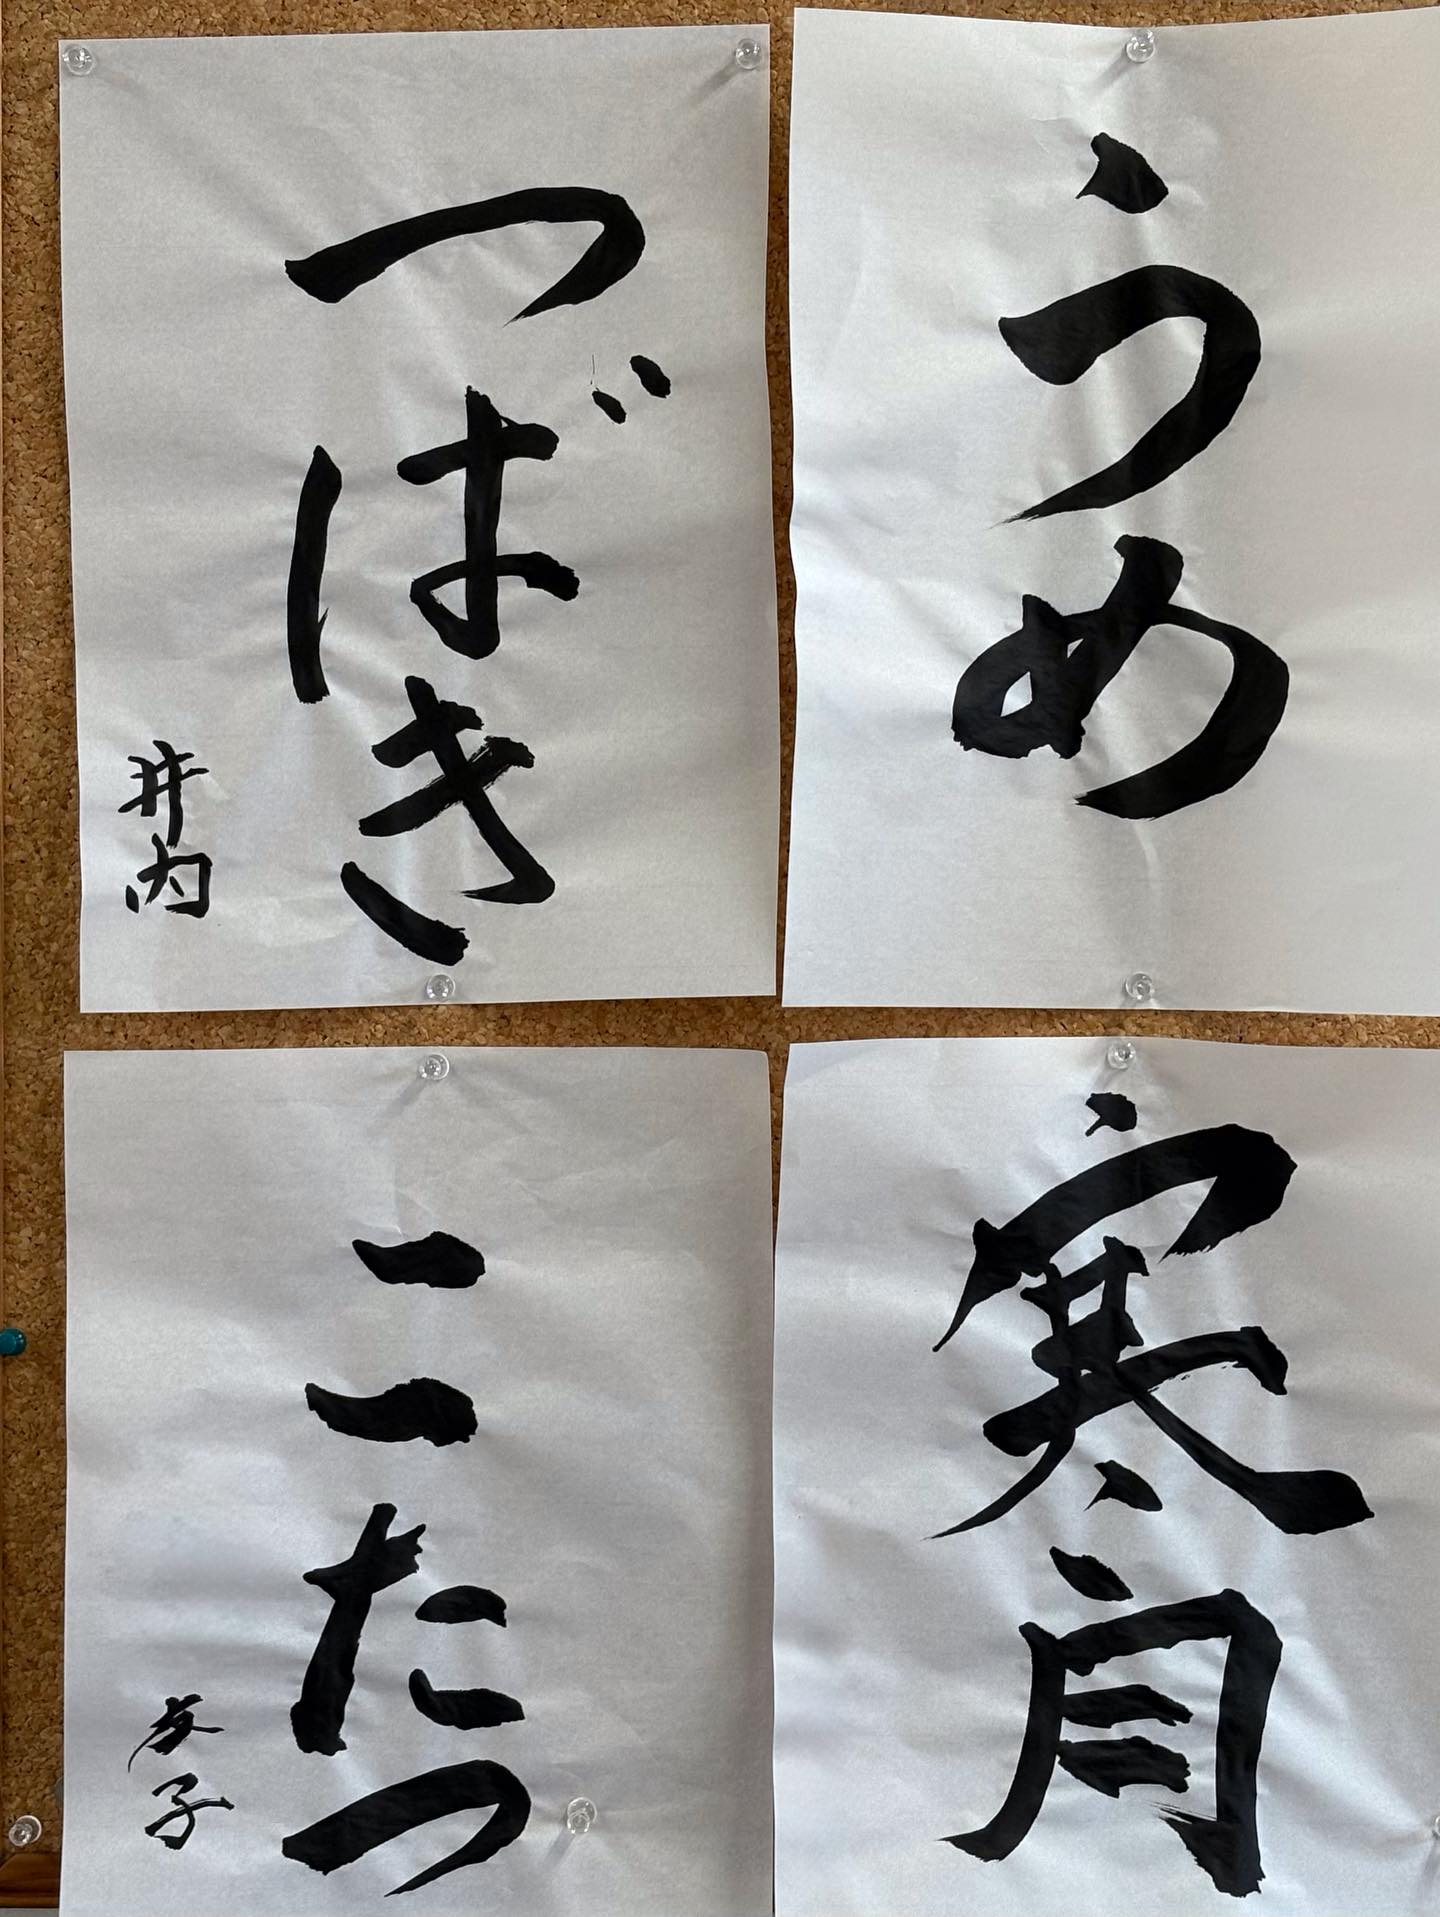 つばき
井内
うめ
こたつ
友子
寒月